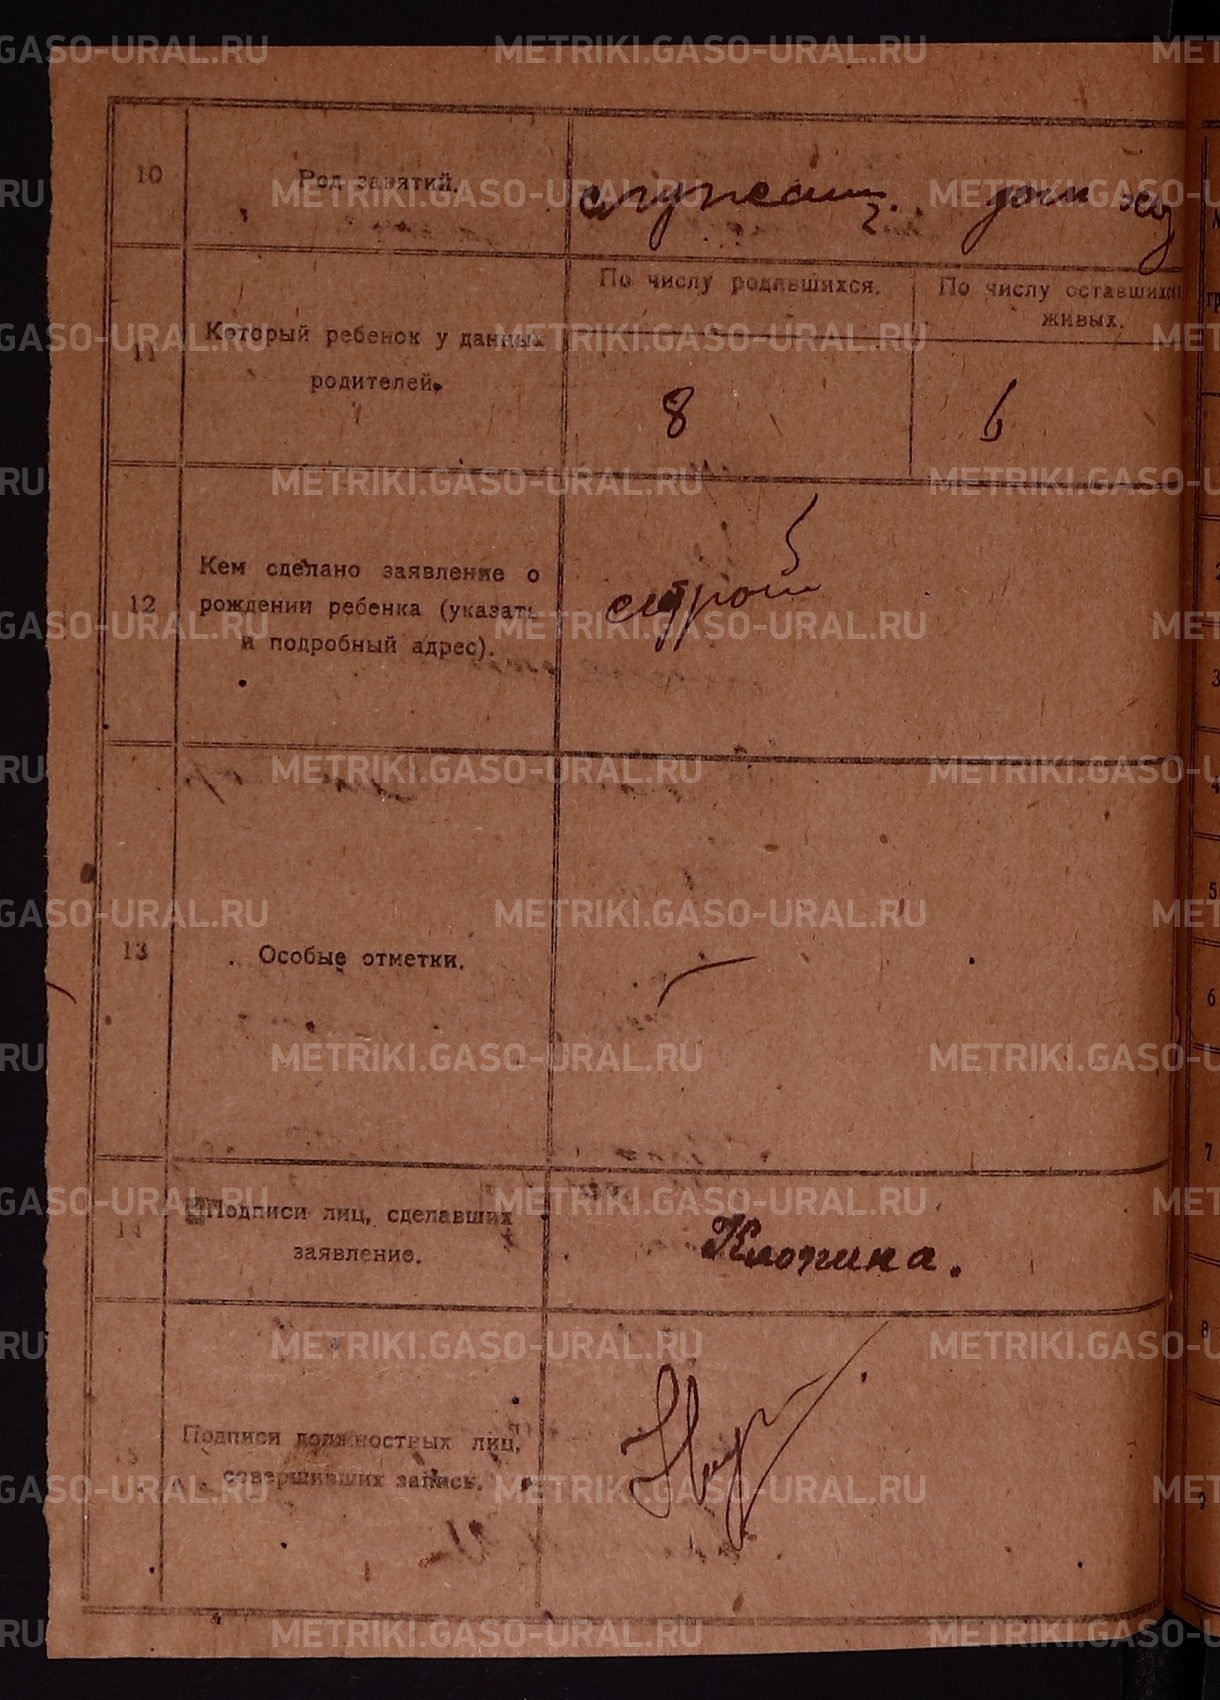 METRIKI.GASO-URAL.RU
10
Род занятий.
служащ. дом хоз
По числу родившихся.
По числу оставшихся живых.
11
Который ребенок у данных
родителей.
8
6
12
Кем сделано заявление о
рождении ребенка (указать
и подробный адрес).
сестрой
13
Особые отметки.
14
Подписи лиц, сделавших
заявление.
Клопина.
15
Подписи должностных лиц,
совершивших запись.
2
3
4
5
6
7
8
9